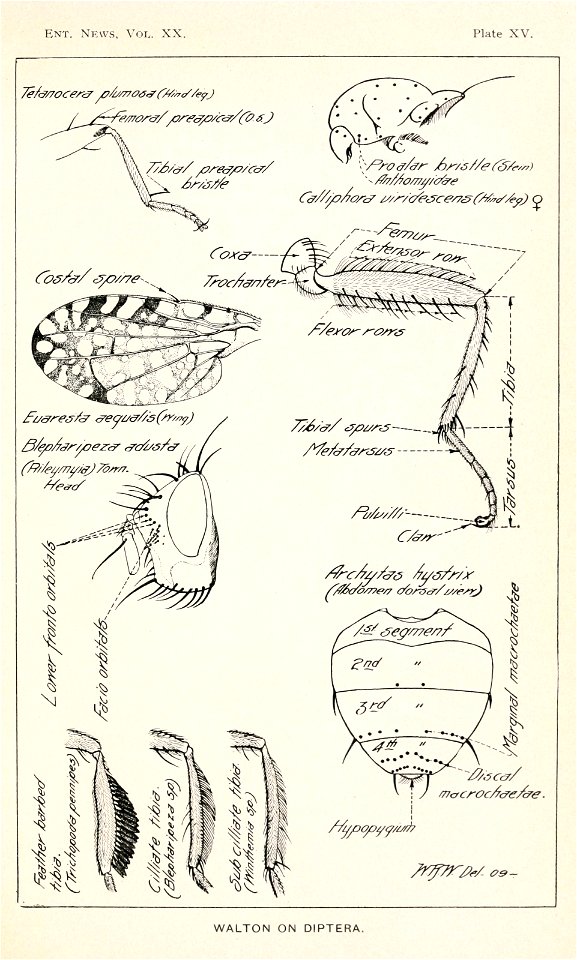 ENT. NEWS, VOL. XX.
Plate XV.
Tetanocera plumosa (Hind leg)
Femoral preapical (O.S.)
Tibial preapical
bristle
Proalar bristle (Stein)
Anthomyidae
Calliphora viridescens (Hind leg) ♀
Femur
Extensor row
Coxa
Trochanter
Flexor rows
Costal spine
Euaresta aequalis (Wing)
Tibia
Tibial spurs
Metatarsus
Tarsus
Pulvilli
Claw
Blepharipeza adusta
(Rileymyia) Town.
Head
Lower fronto orbitals
Facio orbitals
Archytas hystrix
(Abdomen dorsal view)
1st segment
2nd "
3rd "
4th "
Marginal macrochaetae
Discal
macrochaetae.
Hypopygium
Feather barbed
tibia.
(Trichopoda pennipes)
Cilliate tibia.
(Blepharipeza sp)
Sub cilliate tibia
(Winthemia sp)
WRW Del. 09-
WALTON ON DIPTERA.